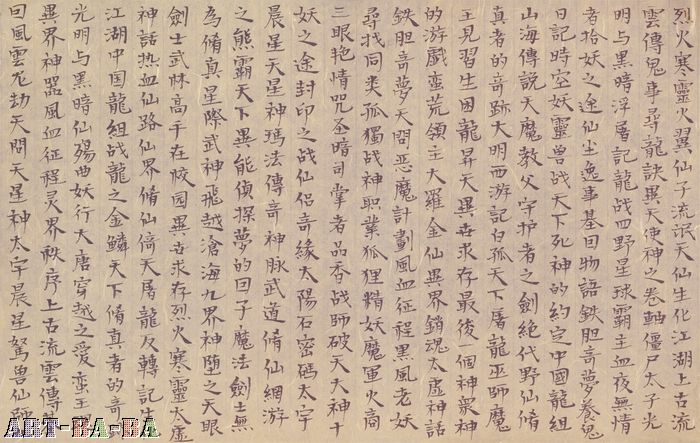 烈火寒靈火翼仙子流氓天仙生化江湖上古流
雲傳鬼事尋龍訣異天使神之卷軸僵尸太子光
明与黑暗浮屠記龍战四野星球霸主血夜無情
者拾妖之途仙尘逸事基因物語鉄胆奇夢養鬼
日記時空妖靈兽战天下死神的約定中國龍組
山海傳説天魔教父守护者之劍絶代野仙脩
真者的奇跡大明西游記白孤天下屠龍巫師魔
王見習生困龍昇天異世求存最後一個神衆神
的游戲蛮荒領主大羅金仙異界銷魂太虚神話
鉄胆奇夢天問恶魔計劃風血征程黑風老妖
尋找同类孤獨战神职業狐狸精妖魔軍火商
三眼艳情咒圣暗司掌者品香战師破天大神十
妖之途封印之战仙侣奇緣太陽石密碼太宇
晨星天星神瑪法傳奇神脉武道脩仙網游
之熊霸天下異能偵探夢的因子魔法劍士無
為脩真星際武神飛越滄海九界神堕之天眼
劍士武林高手在校园異世求存烈火寒靈太虚
神話热血仙路仙界脩仙倚天屠龍反轉記生化
江湖中国龍組战龍之金鱗天下脩真者的奇
光明与黑暗仙殤曲妖行大唐穿越之爱蛮王
異界神器風血征程灵界秩序上古流雲傳
回風雲龙劫天問天星神太宇晨星驽兽仙師
ART-BA-BA